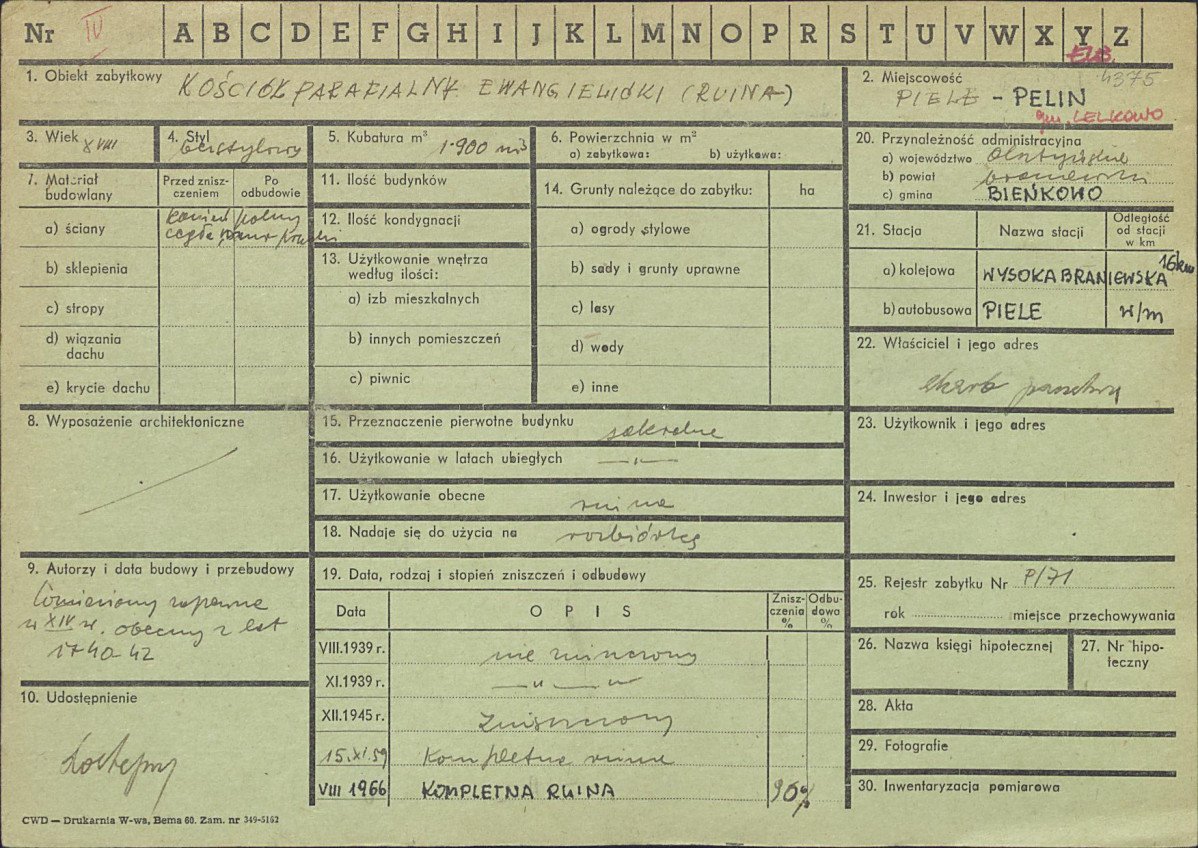 Nr IV A B C D E F G H I J K L M N O P R S T U V W X Y Z
ELB.
1. Obiekt zabytkowy KOŚCIÓŁ PARAFIALNY EWANGIELICKI (RUINA)
2. Miejscowość 4375
PIELE - PELIN
gm. LELKOWO
3. Wiek XVIII
4. Styl bezstylowy
5. Kubatura m³ 1.900 m3
6. Powierzchnia w m²
a) zabytkowa: b) użytkowa:
20. Przynależność administracyjna
a) województwo Olsztyńskie
b) powiat braniewski
c) gmina BIEŃKOWO
7. Materiał budowlany
Przed znisz-
czeniem
Po
odbudowie
a) ściany kamień polny
cegła,
b) sklepienia
c) stropy
d) wiązania
dachu
e) krycie dachu
11. Ilość budynków
12. Ilość kondygnacji
13. Użytkowanie wnętrza
według ilości:
a) izb mieszkalnych
b) innych pomieszczeń
c) piwnic
14. Grunty należące do zabytku: ha
a) ogrody stylowe
b) sady i grunty uprawne
c) lasy
d) wody
e) inne
21. Stacja Nazwa stacji
Odległość
od stacji
w km
a) kolejowa WYSOKA BRANIEWSKA 16 km
b) autobusowa PIELE w/m
22. Właściciel i jego adres
skarb państwa
8. Wyposażenie architektoniczne
15. Przeznaczenie pierwotne budynku sakralne
16. Użytkowanie w latach ubiegłych —"—
17. Użytkowanie obecne ruina
18. Nadaje się do użycia na rozbiórkę
23. Użytkownik i jego adres
24. Inwestor i jego adres
9. Autorzy i data budowy i przebudowy
Wzniesiony zapewne
w XIV w. obecny z lat
1740-42
10. Udostępnienie
dostępny
19. Data, rodzaj i stopień zniszczeń i odbudowy
Data OPIS
Znisz-
czenia
%
Odbu-
dowa
%
VIII.1939 r. nie zniszczony
XI.1939 r. —"—"
XII.1945 r. zniszczony
15.XI.59 Kompletna ruina
VIII 1966 KOMPLETNA RUINA 90%
25. Rejestr zabytku Nr P/71
rok miejsce przechowywania
26. Nazwa księgi hipotecznej
27. Nr hipo-
teczny
28. Akta
29. Fotografie
30. Inwentaryzacja pomiarowa
CWD — Drukarnia W-wa, Bema 60. Zam. nr 349-5162